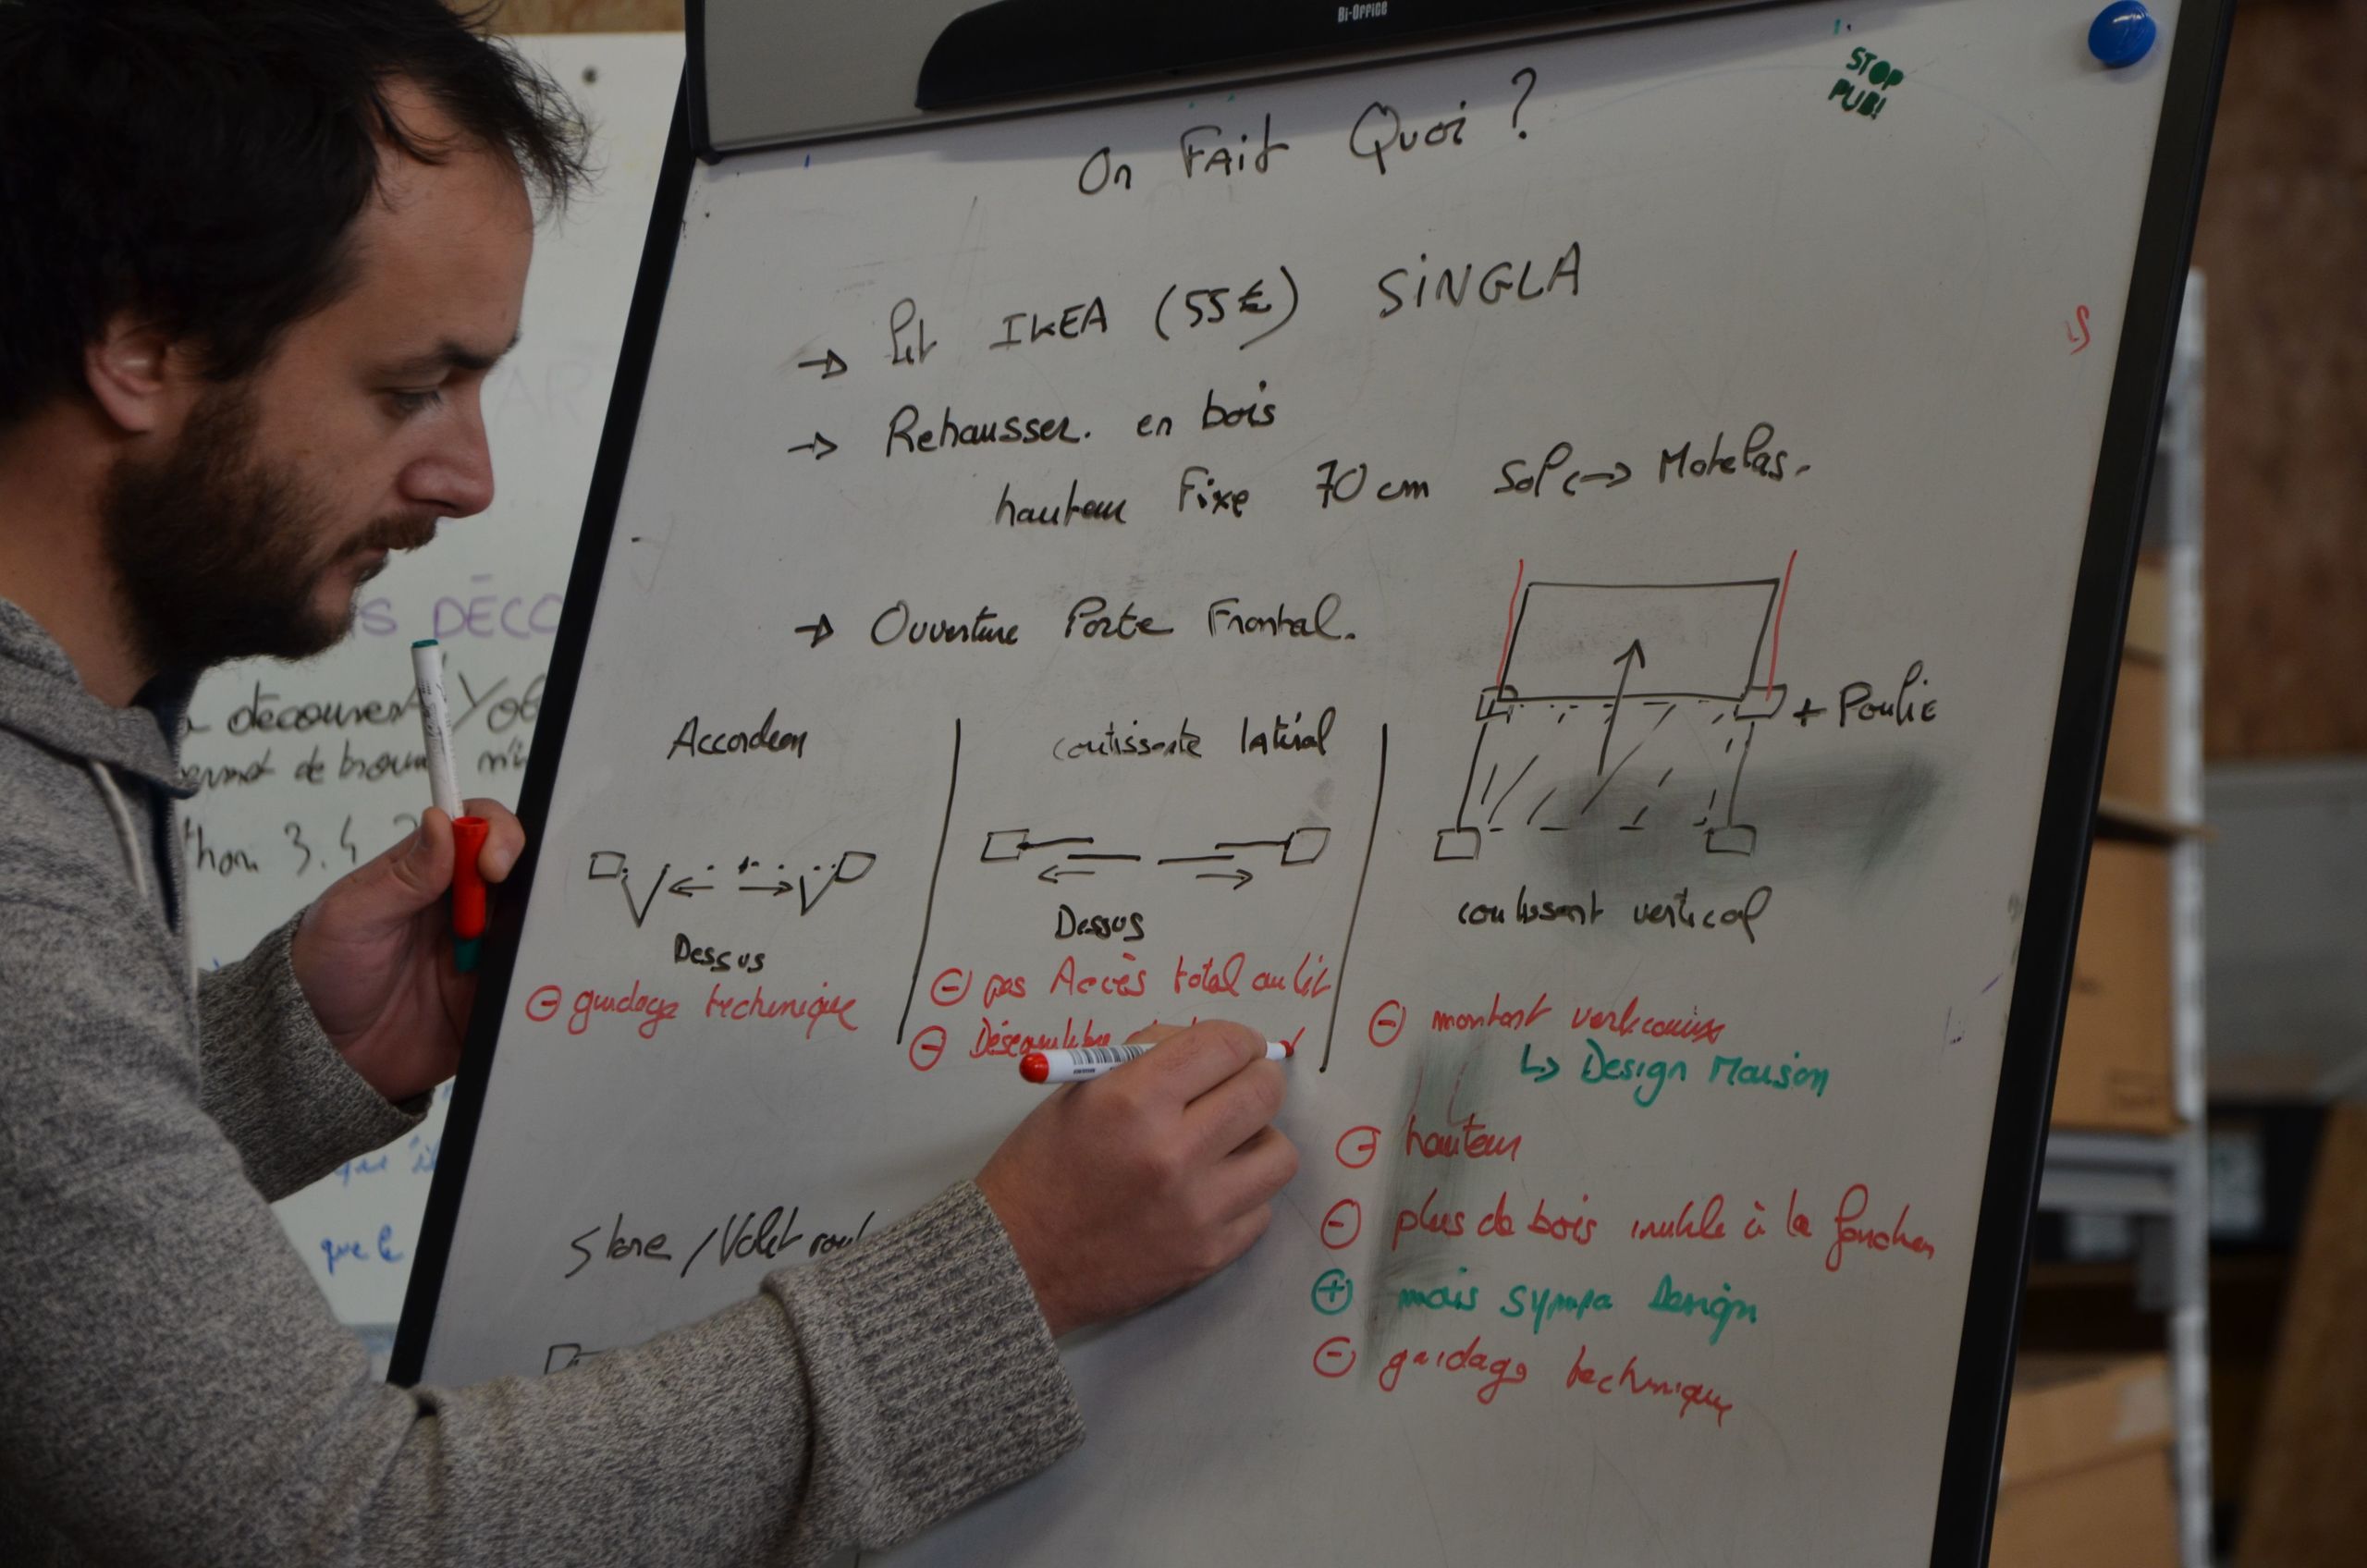 Bi-OFFiCE
STOP
PUB!
On Fait Quoi ?
→ lit IKEA (55€) SiNGLA
→ Rehausser. en bois
hauteur Fixe 70 cm Sol ↔ Matelas.
→ Ouverture Porte Frontal.
+ Poulie
Accordeon
coulissante latéral
Dessus
Dessus
coulissant vertical
⊖ guidage technique
⊖ pas Accès total au lit
⊖ Déséquilibre
⊖ montant verticaux
↳ Design Maison
⊖ hauteur
⊖ plus de bois inutile à la fonction
⊕ mais sympa Design
⊖ guidage technique
Store / Volet roul
S DÉCO
decouvert
de
thon 3.4
que
que le